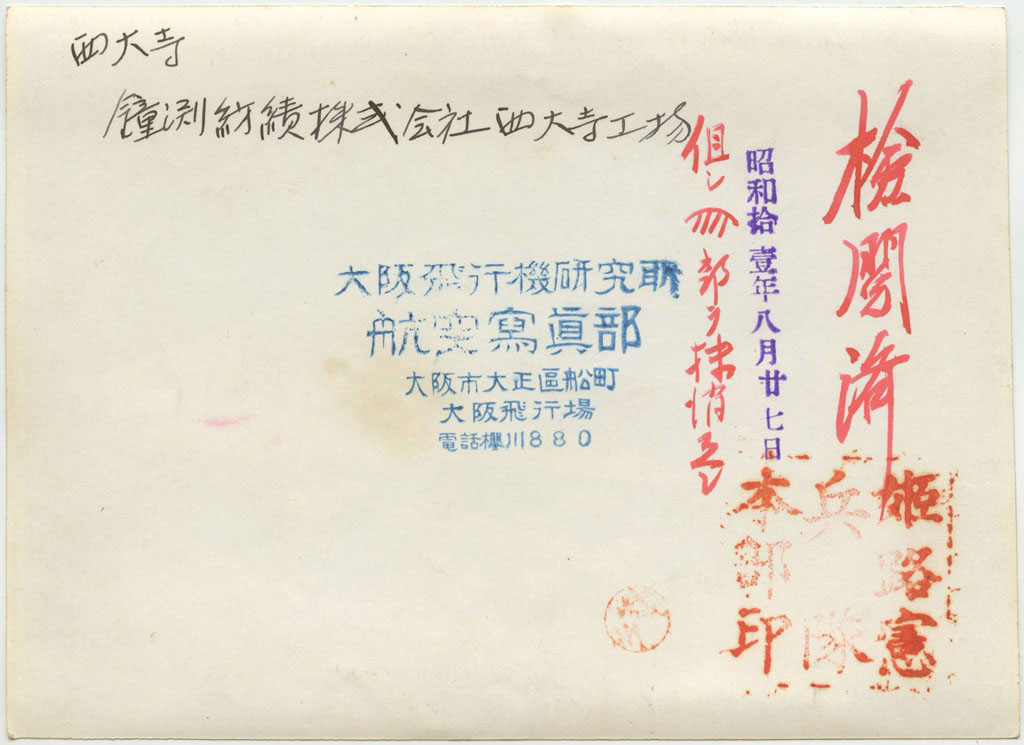 西大寺
鐘渕紡績株式会社西大寺工場
検閲済
昭和拾壹年八月廿七日
但シ
部ヲ抹消スベシ
大阪飛行機研究所
航空寫眞部
大阪市大正區船町
大阪飛行場
電話櫻川880
姫路憲
兵隊
本部印